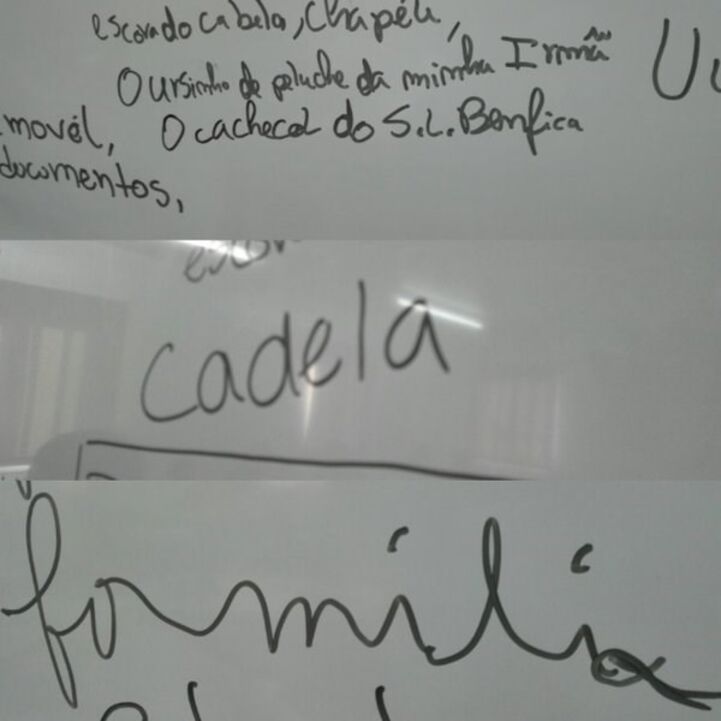 escovado cabelo, chapéu,
O ursinho de peluche da minha Irmã
movél, O cachecol do S.L. Benfica
documentos,
cadela
família